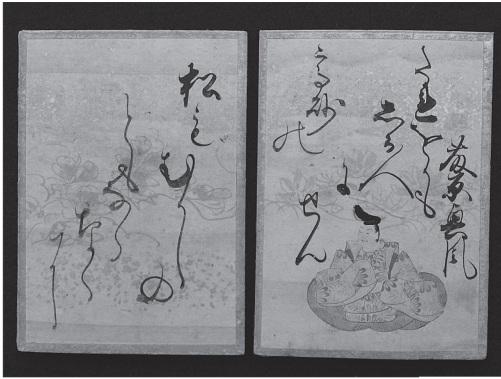 藤原興風
たれをかも
しる人
に
せん
高砂の
松もむかしの
ともなら
なく
に